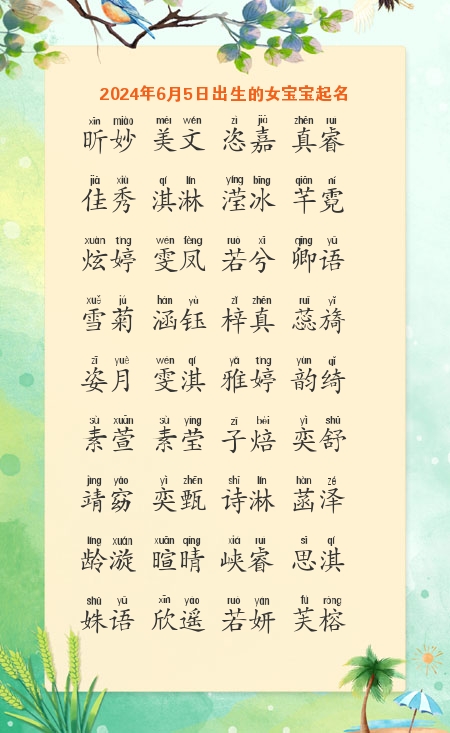 2024年6月5日出生的女宝宝起名
xīn miào měi wén zì jiā zhēn ruì
昕妙 美文 恣嘉 真睿
jiā xiù qí lín yíng bīng qiān ní
佳秀 淇淋 滢冰 芊霓
xuàn tíng wén fèng ruò xī qīng yǔ
炫婷 雯凤 若兮 卿语
xuě jú hán yù zǐ zhēn ruǐ yǐ
雪菊 涵钰 梓真 蕊旖
zī yuè wén qí yǎ tíng yùn qǐ
姿月 雯淇 雅婷 韵绮
sù xuān sù yíng zǐ bèi yì shū
素萱 素莹 子焙 奕舒
jìng yǎo yì zhēn shī lín hàn zé
靖窈 奕甄 诗淋 菡泽
líng xuán xuān qíng xiá ruì sī qí
龄漩 暄晴 峡睿 思淇
shū yǔ xīn yáo ruò yán fú róng
姝语 欣遥 若妍 芙榕